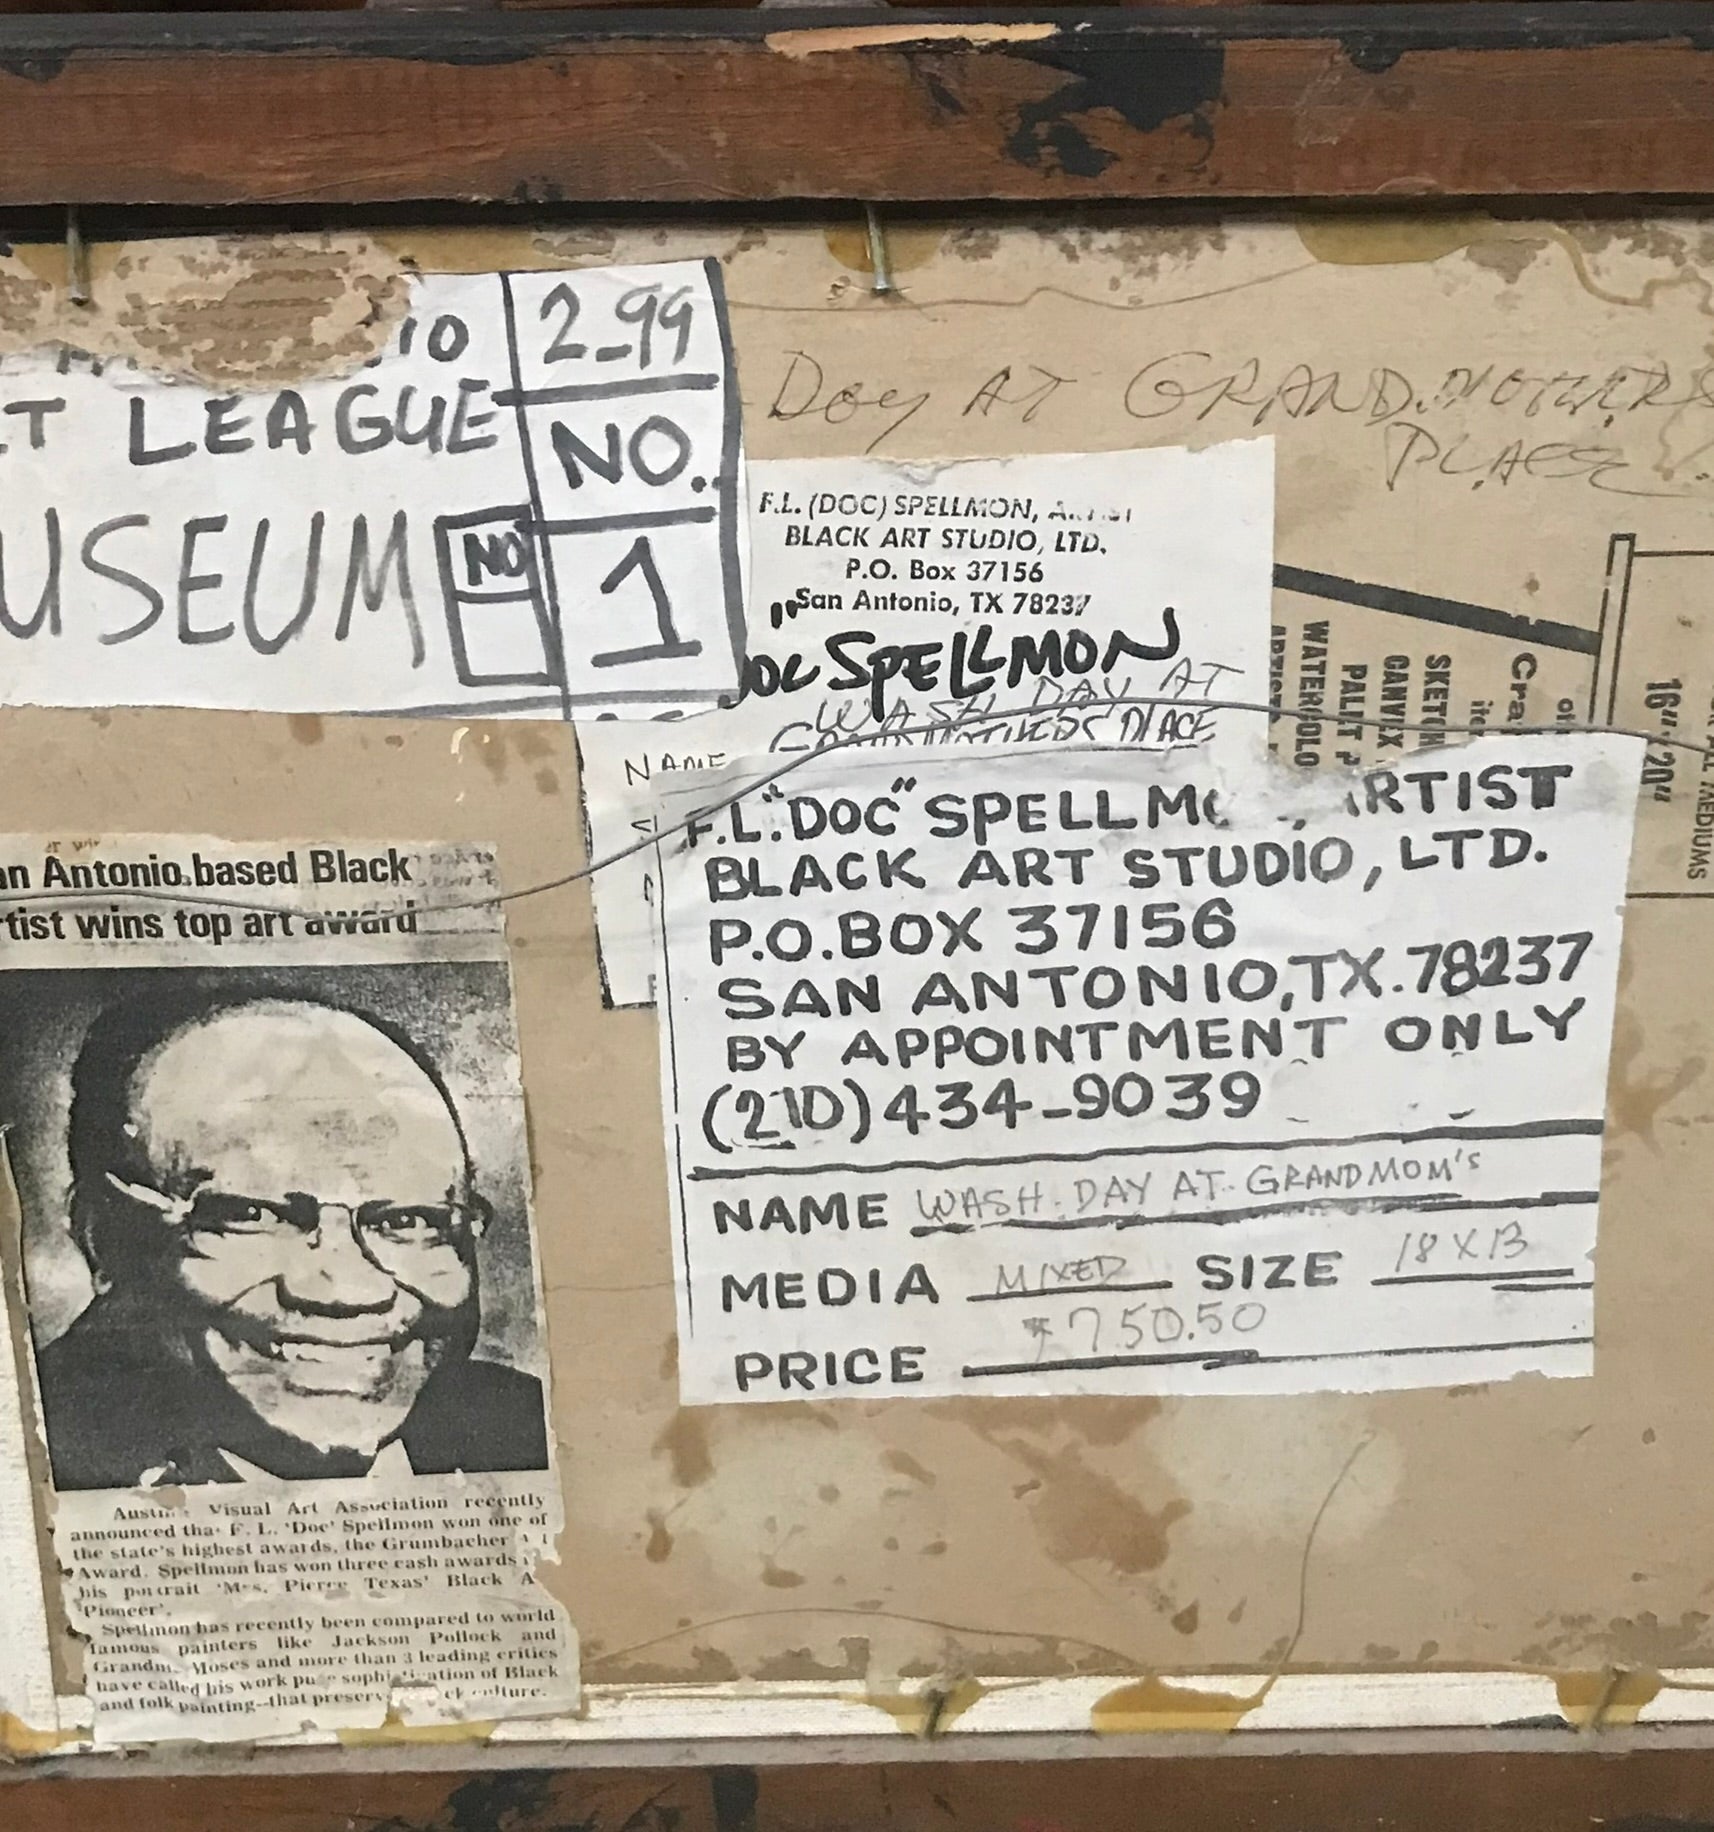 IO
2-99
T LEAGUE
NO.
USEUM
NO
1
DAY AT GRANDMOTHERS
PLACE
F.L. (DOC) SPELLMON,
BLACK ART STUDIO, LTD.
P.O. Box 37156
San Antonio, TX 78237
"DOC SPELLMON
WASH DAY AT
GRANDMOTHERS PLACE
NAME
F.L. "DOC" SPELLMO ARTIST
BLACK ART STUDIO, LTD.
P.O.BOX 37156
SAN ANTONIO, TX. 78237
BY APPOINTMENT ONLY
(210) 434-9039
NAME WASH DAY AT GRANDMOM'S
MEDIA MIXED SIZE 18 X 13
PRICE $750.50
an Antonio based Black
rtist wins top art award
Visual Art Association recently
announced that F. L. 'Doc' Spellmon won one of
the state's highest awards, the Grumbacher
Award. Spellmon has won three cash awards
his portrait 'Mrs. Pierre Texas' Black A
Pioneer'.
Spellmon has recently been compared to world
famous painters like Jackson Pollock and
Grandm. Moses and more than 3 leading critics
have called his work pure sophistication of Black
and folk painting--that preserv culture.
Cra
SKETCH
CANVIX
PALET P
WATERPOLO
16" x 20"
MEDIUMS